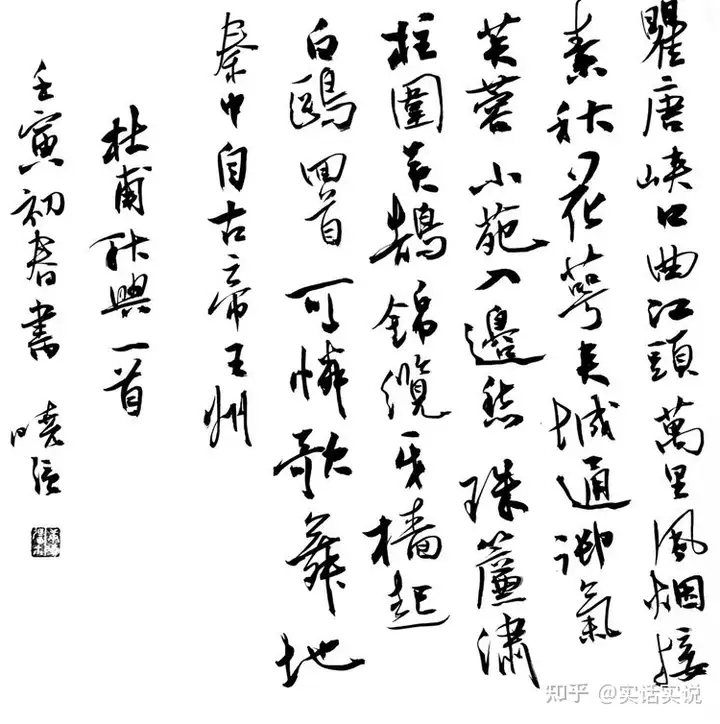 瞿唐峡口曲江頭萬里風烟接
素秋花萼夹城通御氣
芙蓉小苑入邊愁珠簾繡
柱圍黄鵠錦纜牙檣起
白鷗回首可憐歌舞地
秦中自古帝王州
杜甫秋興一首
壬寅初春書 曉
知乎 @实话实说